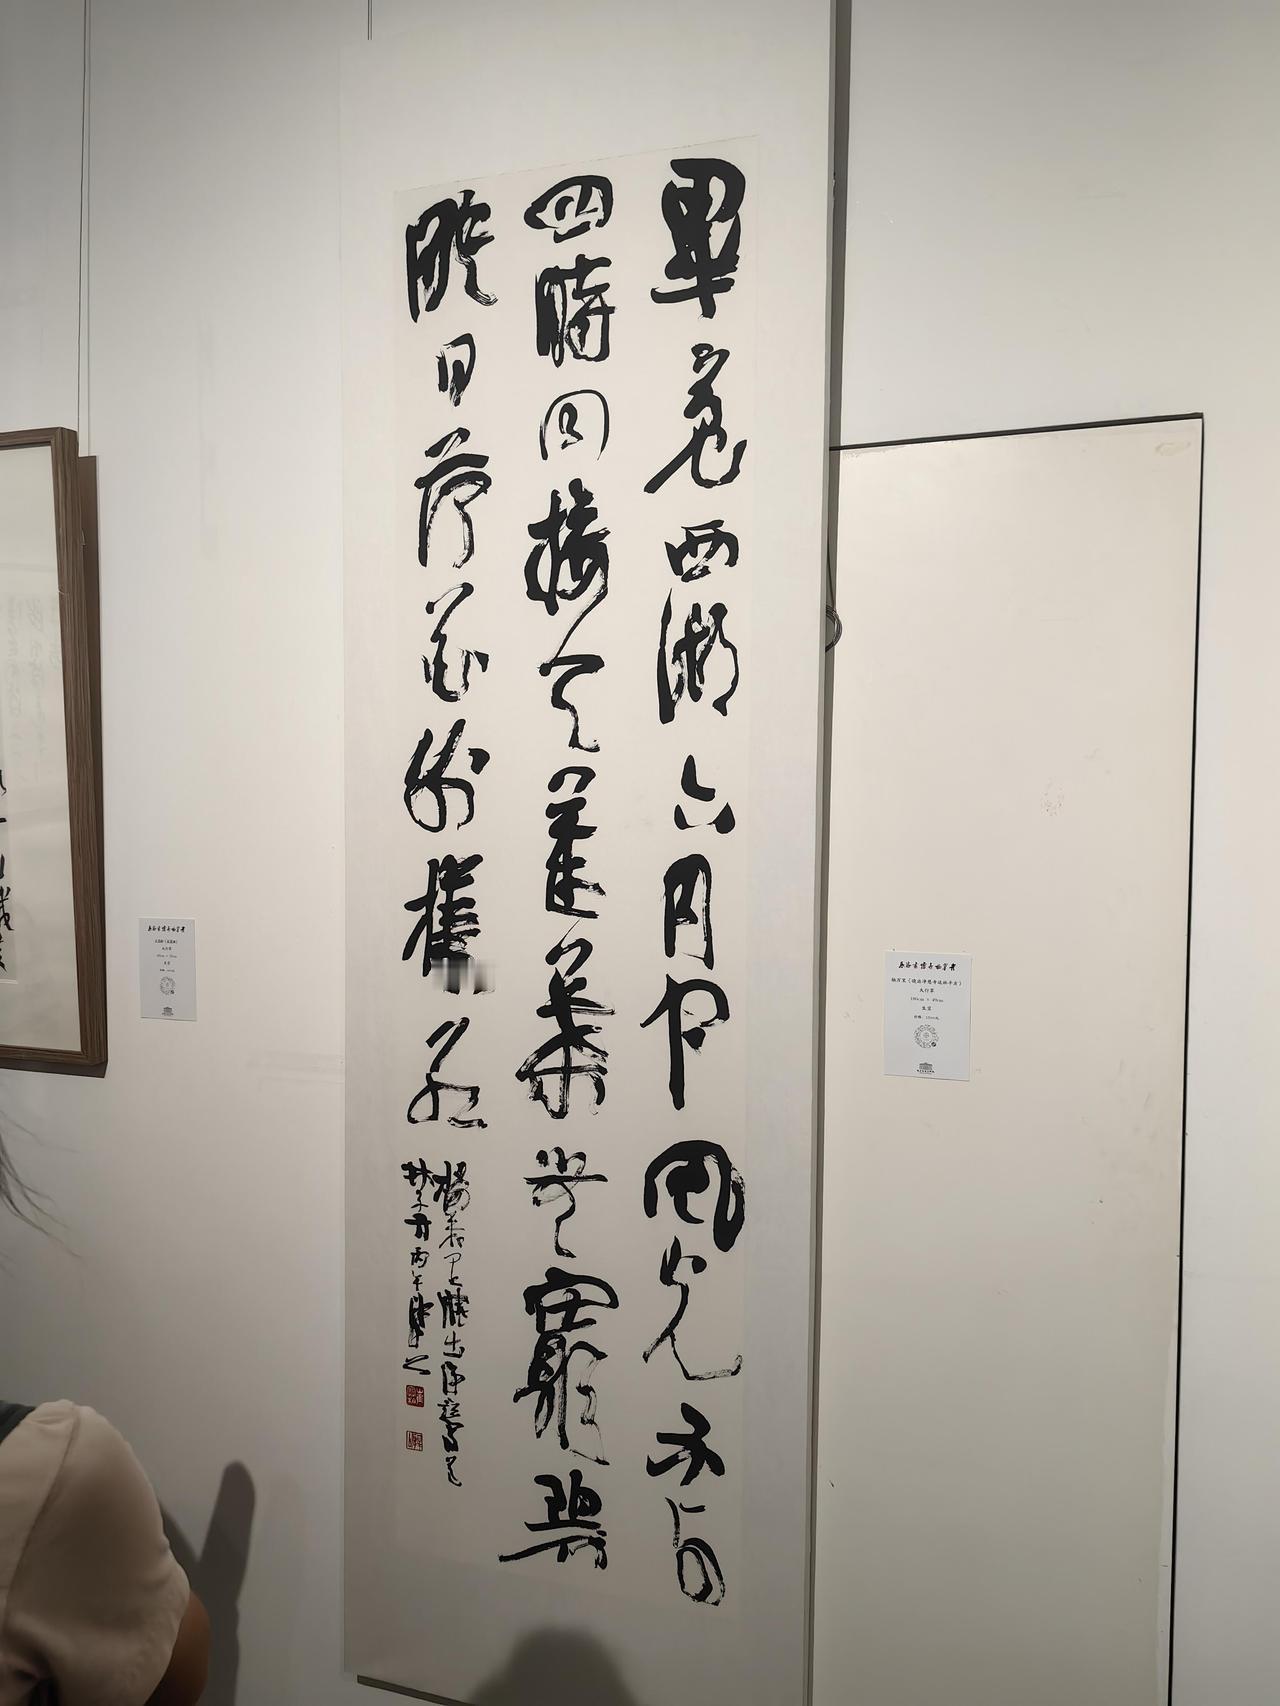 畢竟西湖六月中風光不与
四時同接天蓮葉無窮碧
映日荷花別樣紅
楊萬里曉出淨慈寺送
林子方丙午
杨万里《晓出净慈寺送林子方》
大行草
180cm × 49cm
生宣